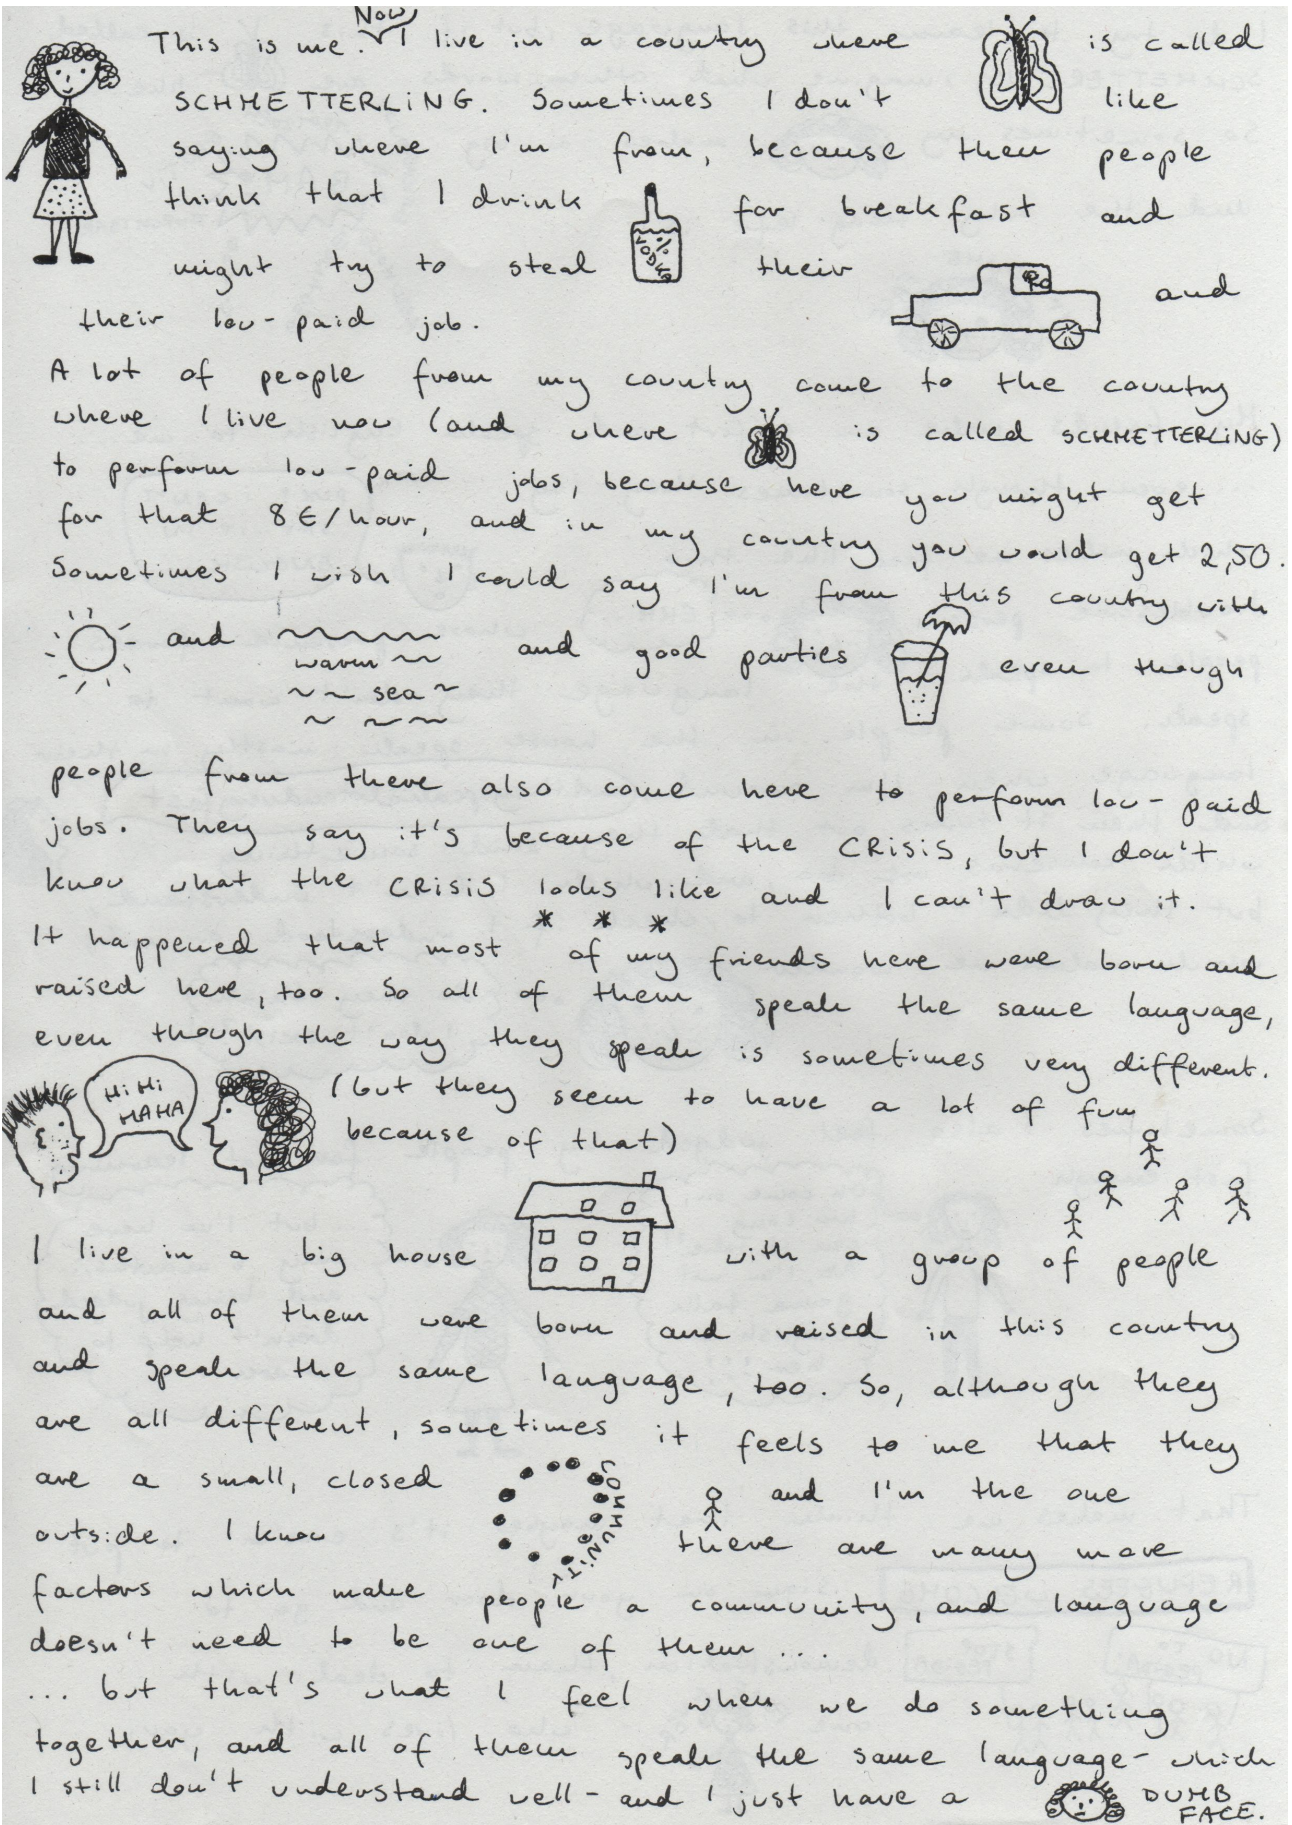 This is me. Now I live in a country where is called
SCHMETTERLING. Sometimes I don't like
saying where I'm from, because then people
think that I drink for breakfast and
40%
VODKA
might try to steal their and
their low-paid job.
A lot of people from my country come to the country
where I live now (and where is called SCHMETTERLING)
to perform low-paid jobs, because here you might get
for that 8€/hour, and in my country you would get 2,50.
Sometimes I wish I could say I'm from this country with
and warm sea and good parties even though
people from there also come here to perform low-paid
jobs. They say it's because of the CRISIS, but I don't
know what the CRISIS looks like and I can't draw it.
* * *
It happened that most of my friends here were born and
raised here, too. So all of them speak the same language,
even though the way they speak is sometimes very different.
Hi Hi
HAHA
(but they seem to have a lot of fun
because of that)
I live in a big house with a group of people
and all of them were born and raised in this country
and speak the same language, too. So, although they
are all different, sometimes it feels to me that they
are a small, closed COMMUNITY and I'm the one
outside. I know there are many more
factors which make people a community, and language
doesn't need to be one of them...
... but that's what I feel when we do something
together, and all of them speak the same language - which
I still don't understand well - and I just have a DUMB
FACE.